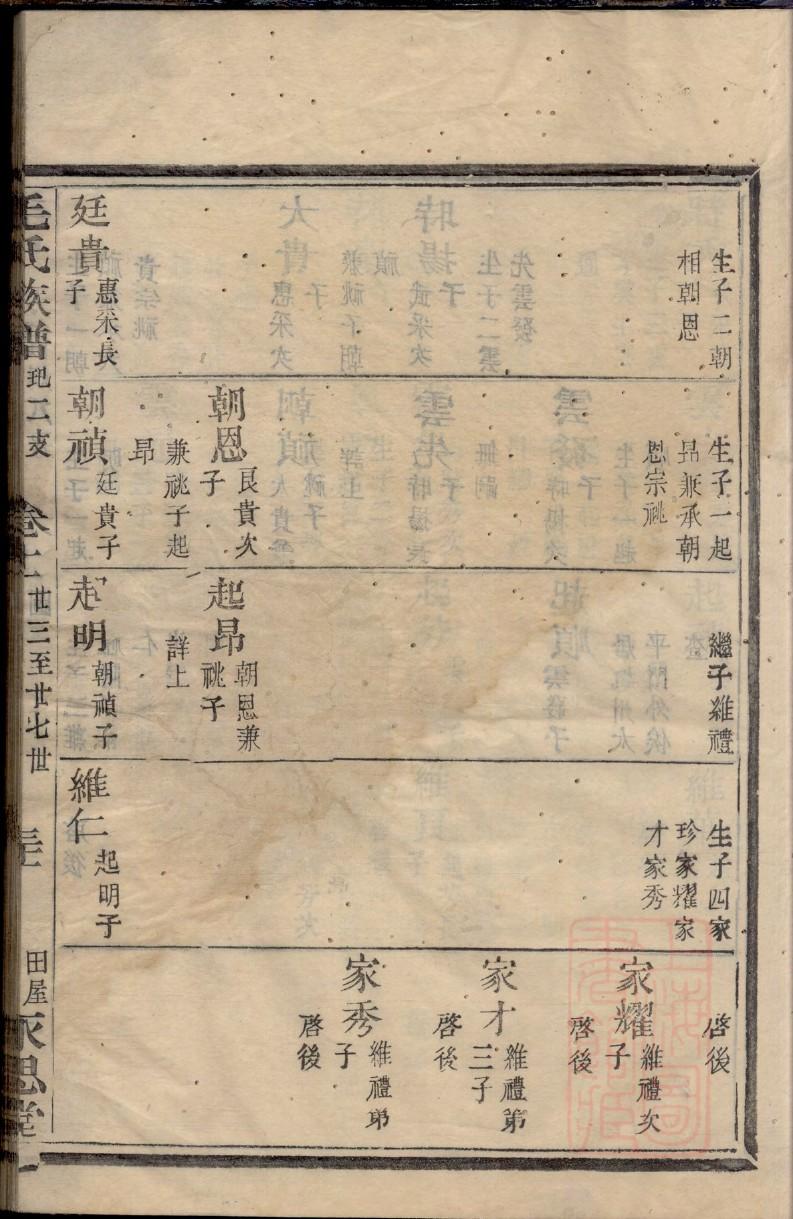 生子二朝
相朝恩
廷貴惠采長
子
生子一起
昂兼承朝
恩宗祧
朝恩艮貴次
子
兼祧子起
昂
朝禎廷貴子
繼子維禮
起昂朝恩兼
祧子
詳上
起明朝禎子
生子四家
珍家耀家
才家秀
維仁起明子
啓後
家耀維禮次
子
啓後
家才維禮第
三子
啓後
家秀維禮弟
子
啓後
毛氏族譜 玘二支 卷十一 廿三至廿七世 田屋永思堂